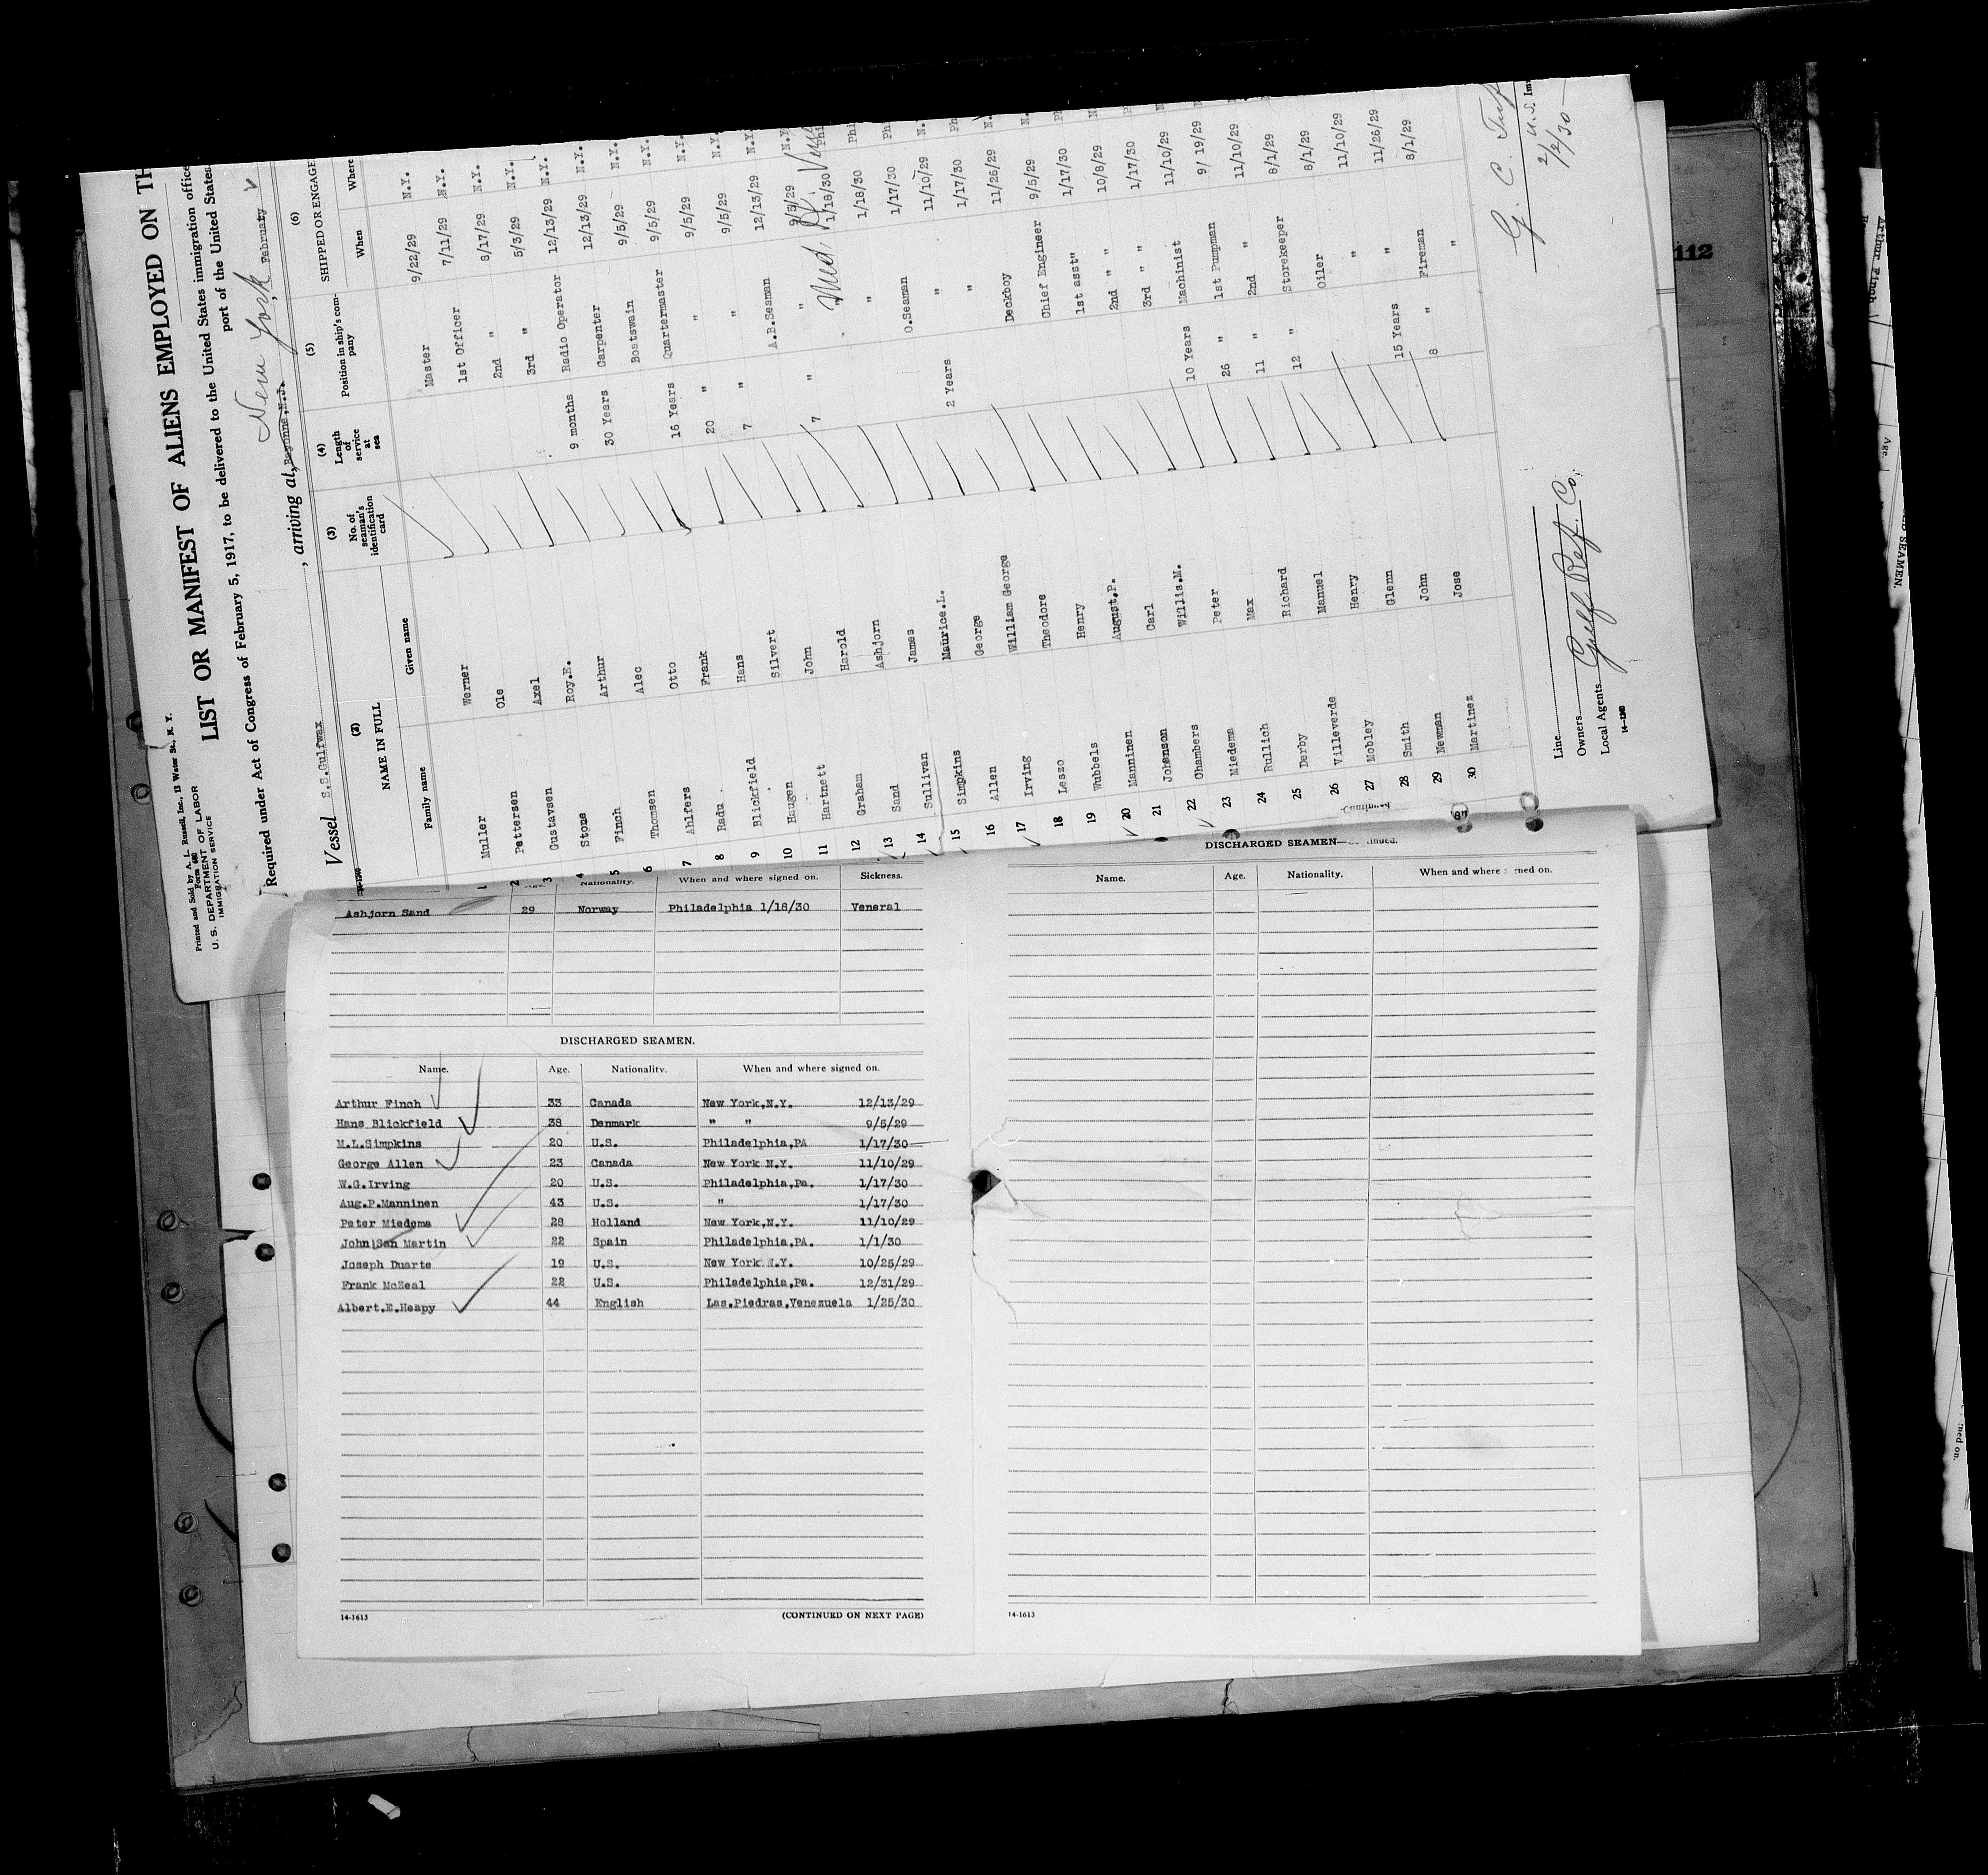 Printed and Sold by A. L. Russell, Inc., 13 Water St., N. Y.
Form 680
U. S. DEPARTMENT OF LABOR
IMMIGRATION SERVICE
LIST OR MANIFEST OF ALIENS EMPLOYED ON TH
Required under Act of Congress of February 5, 1917, to be delivered to the United States immigration office
port of the United States
New York
Vessel S.S.Gulfwax, arriving at, Bayonne,N.J. February
(2) (3) (4) (5) (6)
NAME IN FULL No. of seaman's identification card Length of service at sea Position in ship's company SHIPPED OR ENGAGE
Family name Given name When Where
1 Muller Werner Master 9/22/29 N.Y.
2 Pettersen Ole 1st Officer 7/11/29 N.Y.
3 Gustavsen Axel 2nd " 8/17/29 N.Y.
4 Stone Roy.E. 3rd " 5/3/29 N.Y.
5 Finch Arthur 9 months Radio Operator 12/13/29 N.Y.
6 Thomsen Alec 30 Years Carpenter 12/13/29 N.Y.
7 Ahlfers Otto Boatswain 9/5/29 N.Y.
8 Radu Frank 16 Years Quartermaster 9/5/29 N.Y.
9 Blickfield Hans 20 " " 9/5/29 N.Y.
10 Haugen Silvert 7 " " 9/5/29 N.Y.
11 Hartnett John A.B.Seaman 12/13/29 N.Y.
12 Graham Harold 7 " " 9/5/29 N.Y
13 Sand Ashjorn " 1/18/30 Phi
14 Sullivan James " 1/18/30 Phi
15 Simpkins Maurice.L. O.Seaman 1/17/30 Ph
16 Allen George 2 Years " 11/10/29 N.
17 Irving William George " 1/17/30 Ph
18 Leszo Theodore Deckboy 11/26/29 N.
19 Wubbels Henry Chief Engineer 9/5/29 N.
20 Manninen August.P. 1st asst" 1/17/30 Ph
21 Johanson Carl 2nd " " 10/8/29 N
22 Chambers Willis.M. 3rd " " 1/17/30
23 Miedema Peter 10 Years Machinist 11/10/29 N
24 Rullich Max 26 " 1st Pumpman 9/ 19/29
25 Derby Richard 11 " 2nd " 11/10/29
26 Villeverde Manuel 12 " Storekeeper 8/1/29
27 Mobley Henry Oiler 8/1/29
28 Smith Glenn " 11/10/29
29 Newman John 15 Years " 11/26/29
30 Martinez Jose 8 " Fireman 8/1/29
"
Continued
Line
Owners Gulf Ref. Co.
Local Agents
14-1240
G. C.
U.S. Im
2/2/30
112
Age. Nationality. When and where signed on. Sickness.
Ashjorn Sand 29 Norway Philadelphia 1/18/30 Veneral
DISCHARGED SEAMEN.
Name. Age. Nationality. When and where signed on.
Arthur Finch 33 Canada New York,N.Y. 12/13/29
Hans Blickfield 38 Denmark " " 9/5/29
M.L.Simpkins 20 U.S. Philadelphia,PA 1/17/30
George Allen 23 Canada New York N.Y. 11/10/29
W.G.Irving 20 U.S. Philadelphia,Pa. 1/17/30
Aug.P.Manninen 43 U.S. " 1/17/30
Peter Miedema 28 Holland New York,N.Y. 11/10/29
John San Martin 22 Spain Philadelphia,PA. 1/1/30
Joseph Duarte 19 U.S. New York N.Y. 10/25/29
Frank McZeal 22 U.S. Philadelphia,Pa. 12/31/29
Albert.E.Heapy 44 English Las.Piedras,Venezuela 1/25/30
14-1613 (CONTINUED ON NEXT PAGE)
DISCHARGED SEAMEN—Continued.
Name. Age. Nationality. When and where signed on.
14-1613
Arthur Finch
Age.
ED SEAMEN.
ned on.